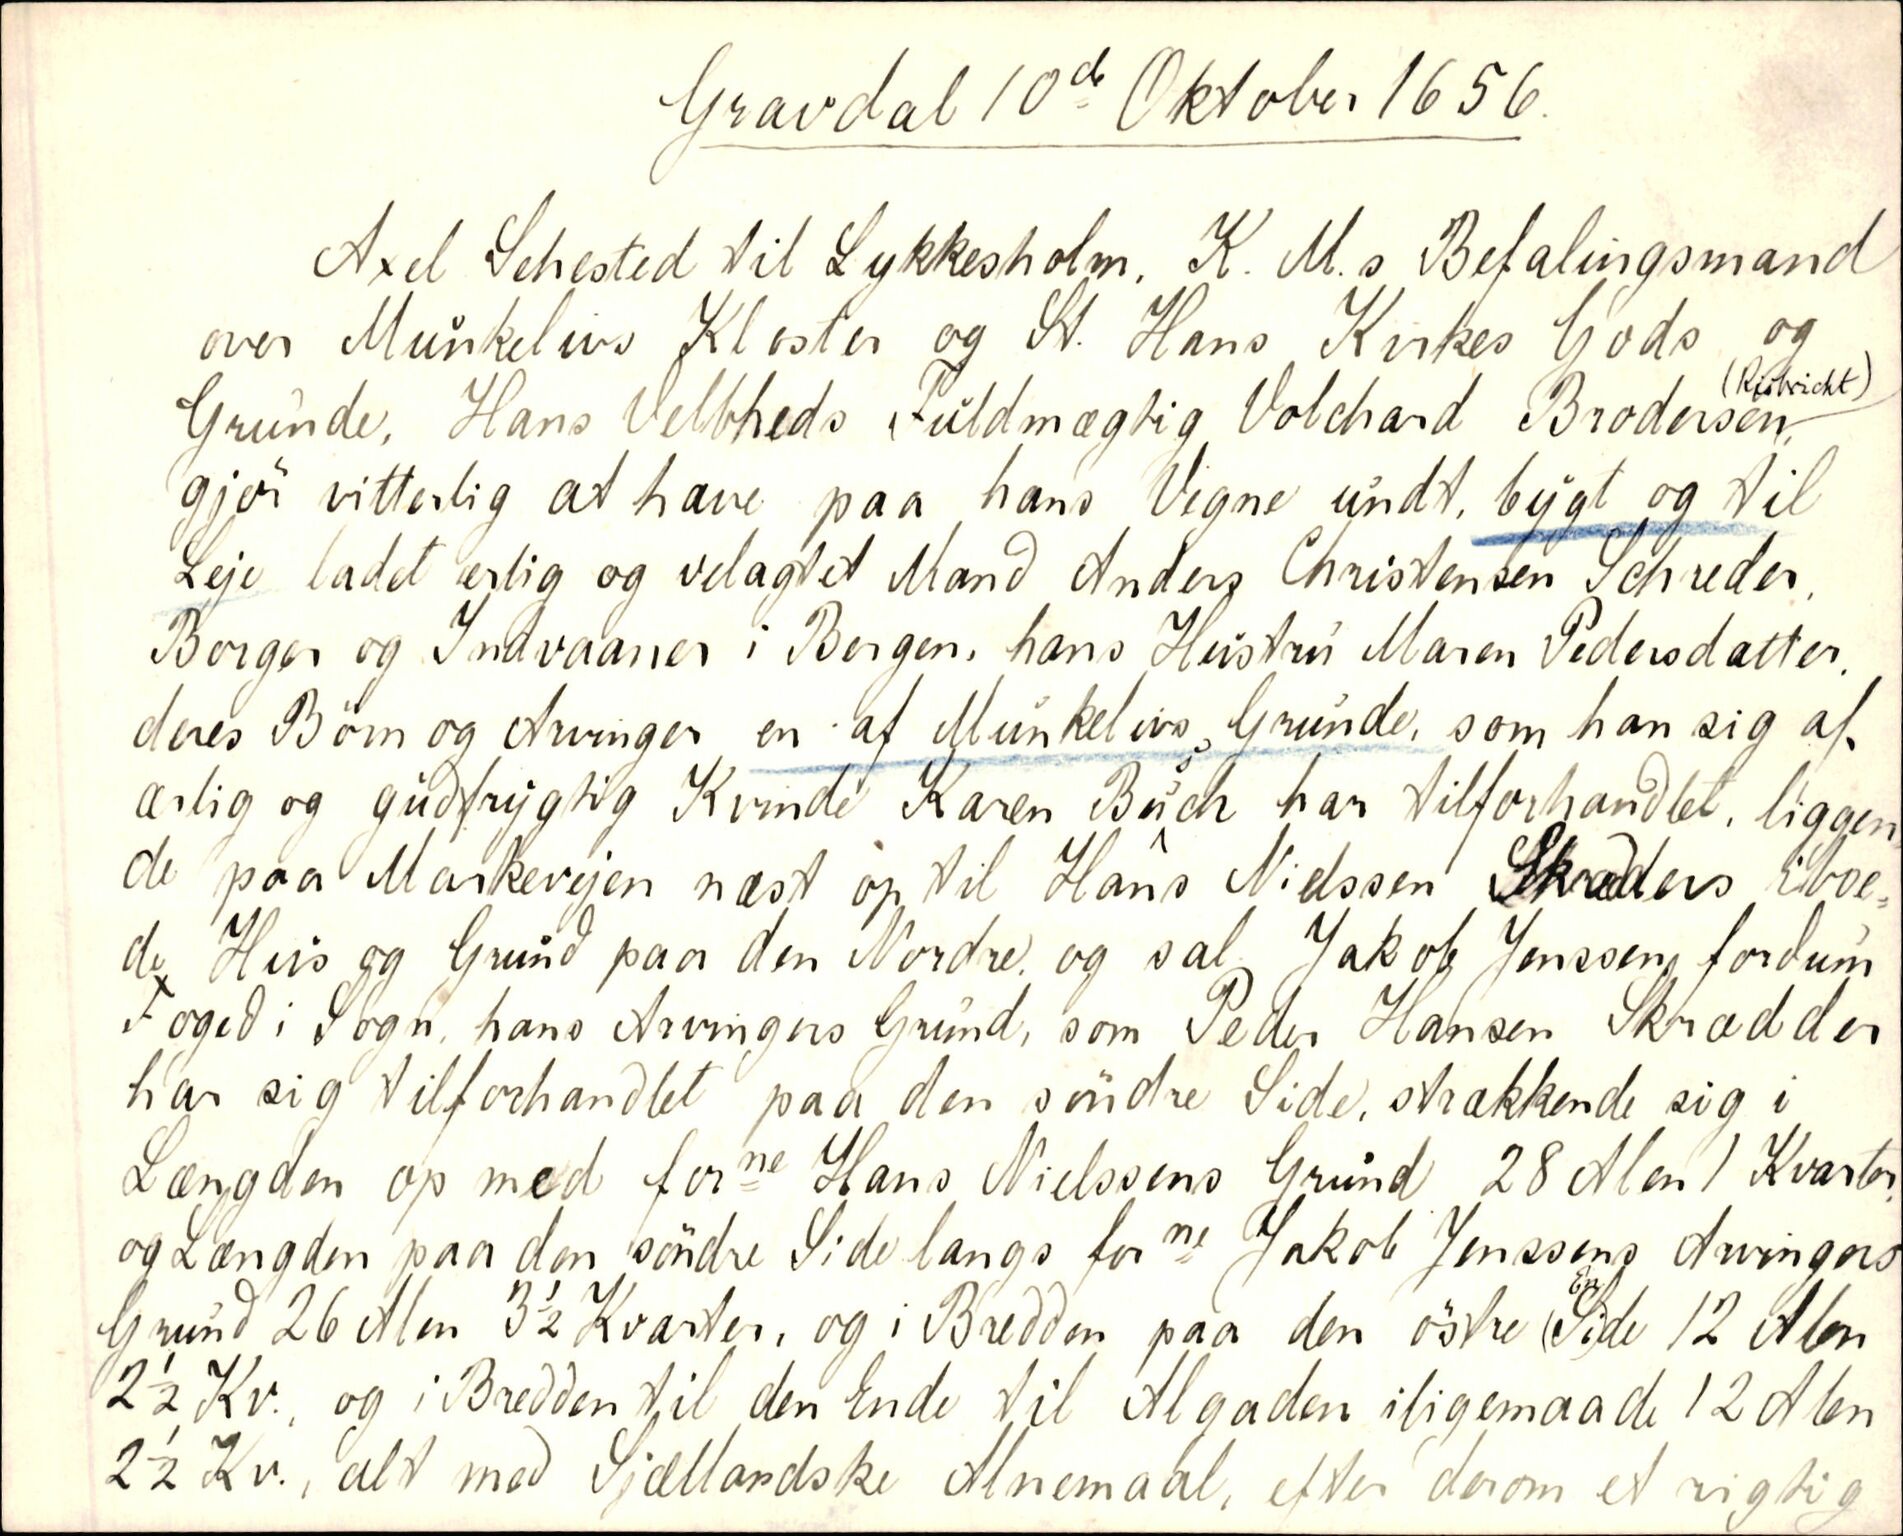 Gravdal 10de Oktober 1656.
Axel Sehested til Lykkesholm, K. M.s Befalingsmand
over Munkelivs Kloster og St. Hans Kirkes Gods og
Grunde, Hans Velbheds Fuldmægtig Volchard Brodersen, (Risbricht)
gjør vitterlig at have paa hans Vegne undt, bygt og til
Leje ladet ærlig og velagtet Mand Anders Christensen Schreder,
Borger og Indvaaner i Bergen, hans Hustru Maren Pedersdatter,
deres Børn og Arvinger en af Munkelivs Grunde, som han sig af
ærlig og gudfrygtig Kvinde Karen Buch har tilforhandlet, liggen-
de paa Markevejen næst op til Hans Nielssen Skræders iboe-
de Hus og Grund paa den Nordre, og sal. Jakob Jenssen, fordum
Foged i Sogn, hans Arvingers Grund, som Peder Hansen Skrædder
har sig tilforhandlet paa den søndre Side, strækkende sig i
Længden op med forne Hans Nielssens Grund 28 Alen 1 Kvarter,
og Længden paa den søndre Side langs forne Jakob Jenssens Arvingers
Grund 26 Alen 3½ Kvarter, og i Bredden paa den østre (Side En 12 Alen
2½ Kv., og i Bredden til den Ende til Algaden iligemaade 12 Alen
2½ Kv., alt med Sjællandske Alnemaal, efter derom et rigtig